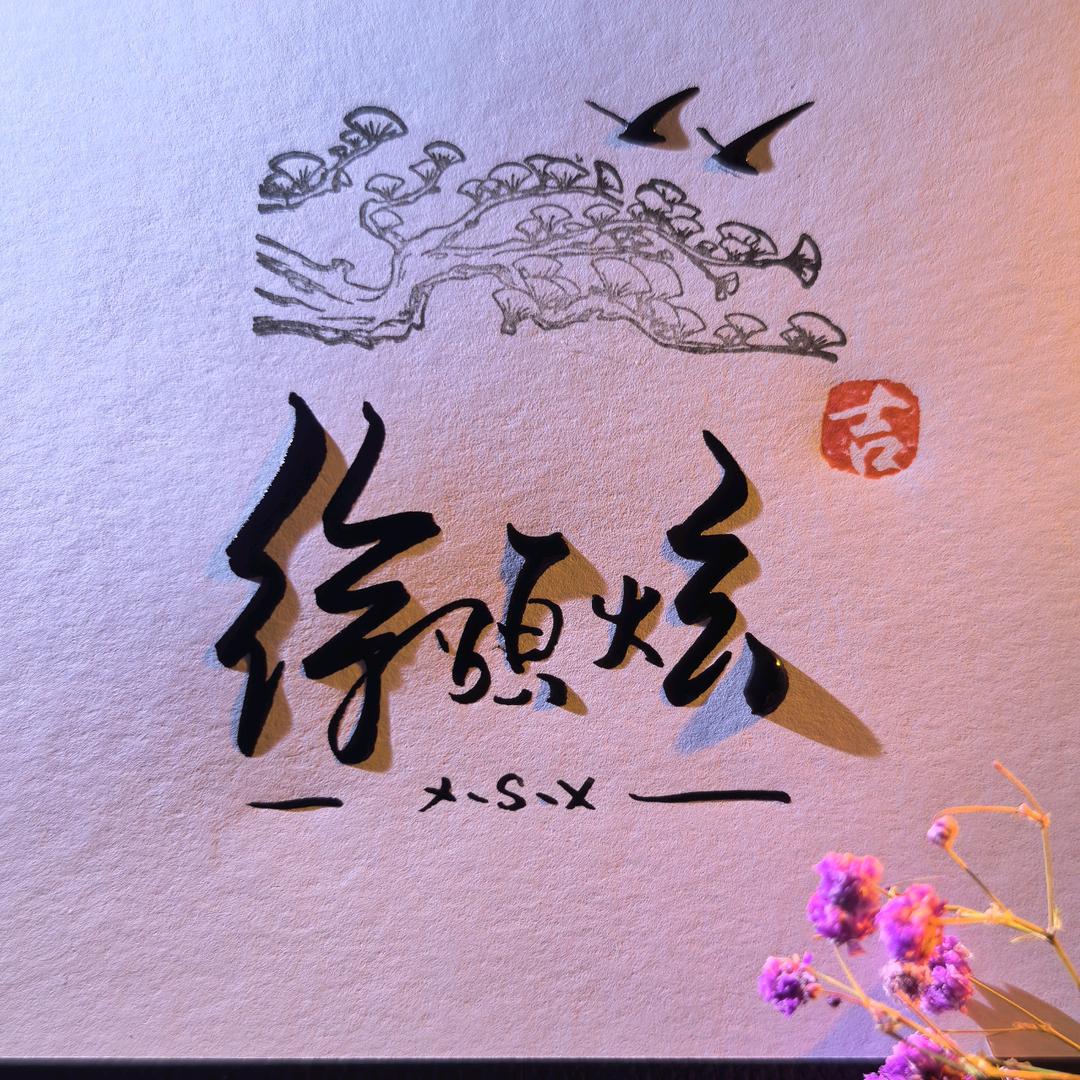 吉
徐碩炫
X、S、X